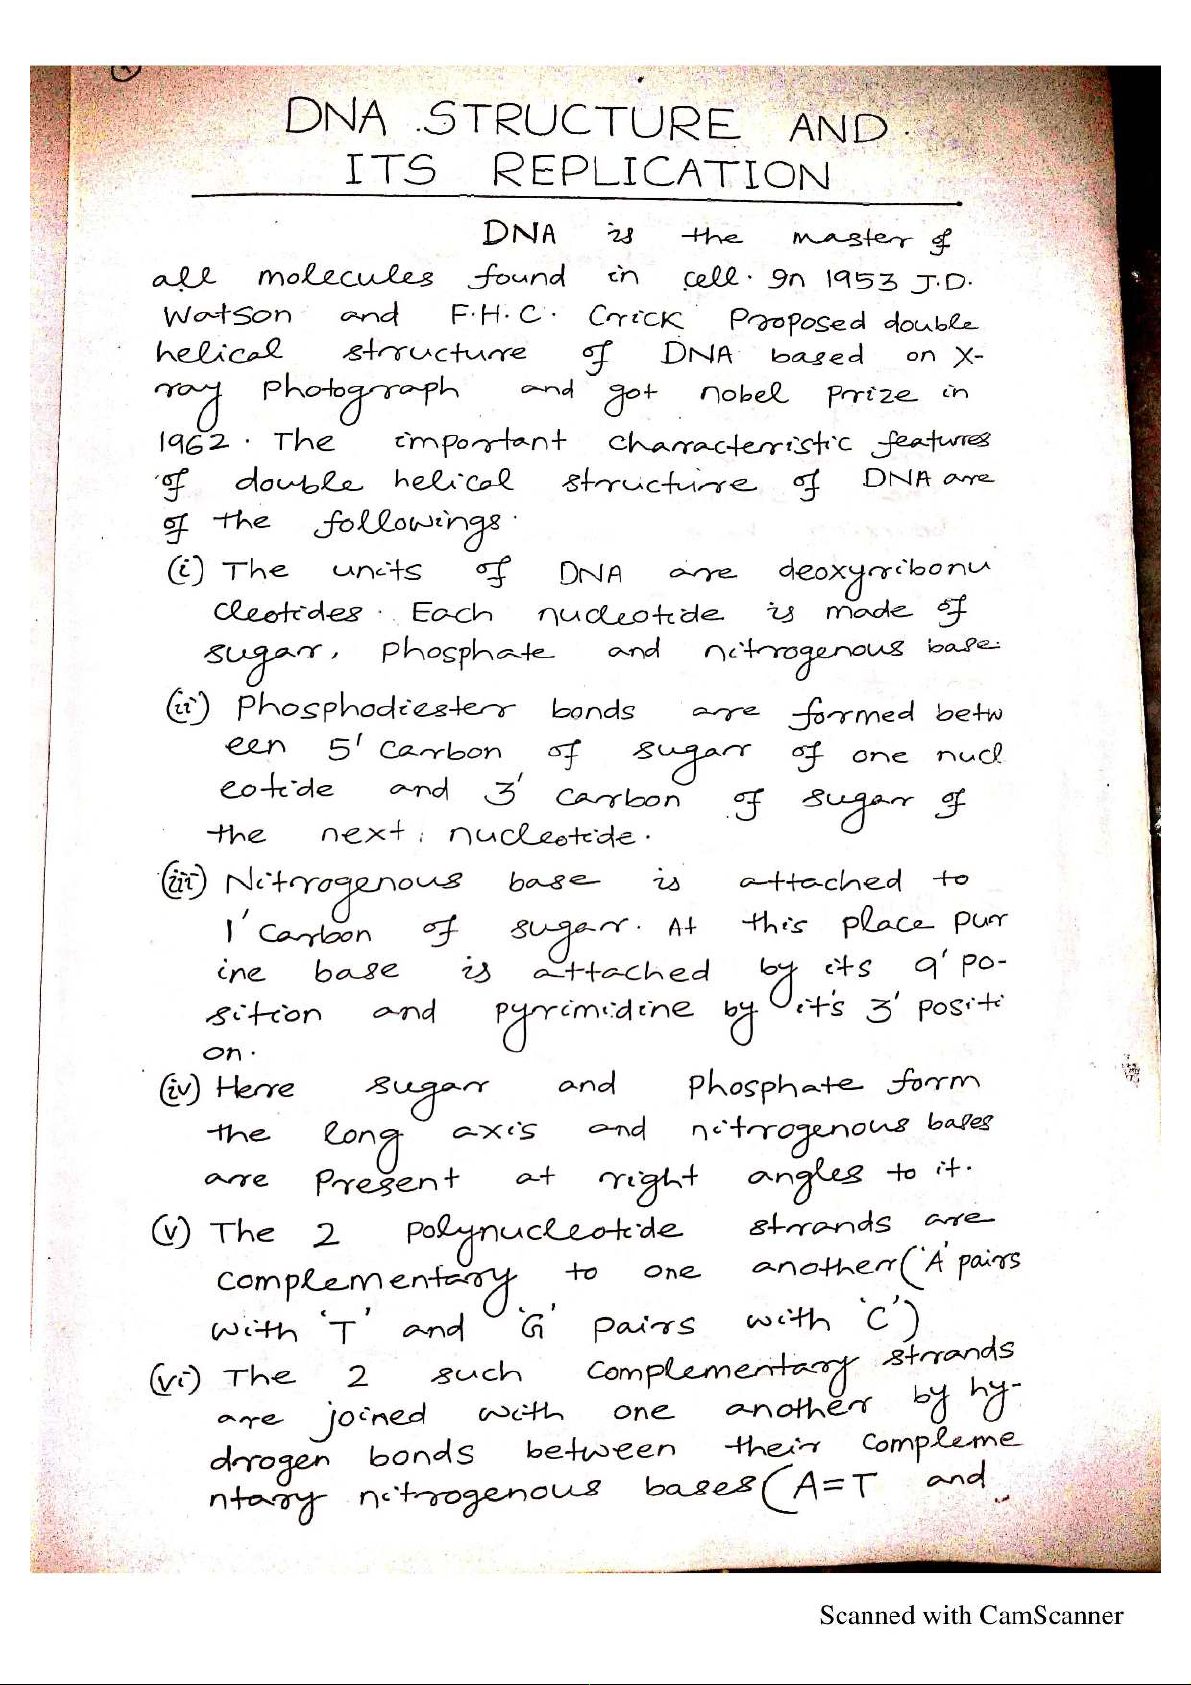 DNA STRUCTURE AND
ITS REPLICATION
DNA is the master of
all molecules found in cell. In 1953 J.D.
Watson and F.H.C. Crick Proposed double
helical structure of DNA based on X-
ray Photograph and got nobel prize in
1962. The important characteristic features
of double helical structure of DNA are
of the followings.
(i) The units of DNA are deoxyribonu
cleotides. Each nucleotide is made of
sugar, Phosphate and nitrogenous base.
(ii) Phosphodiester bonds are formed betw
een 5' Carbon of sugar of one nucl
eotide and 3' carbon of sugar of
the next, nucleotide.
(iii) Nitrogenous base is attached to
1' Carbon of sugar. At this place pur
ine base is attached by its 9' po-
sition and pyrimidine by it's 3' positi
on.
(iv) Here sugar and Phosphate form
the long axis and nitrogenous bases
are Present at right angles to it.
(v) The 2 polynucleotide strands are
complementary to one another ('A' pairs
with 'T' and 'G' pairs with 'C')
(vi) The 2 such complementary strands
are joined with one another by hy-
drogen bonds between their compleme
ntary nitrogenous bases (A=T and
Scanned with CamScanner